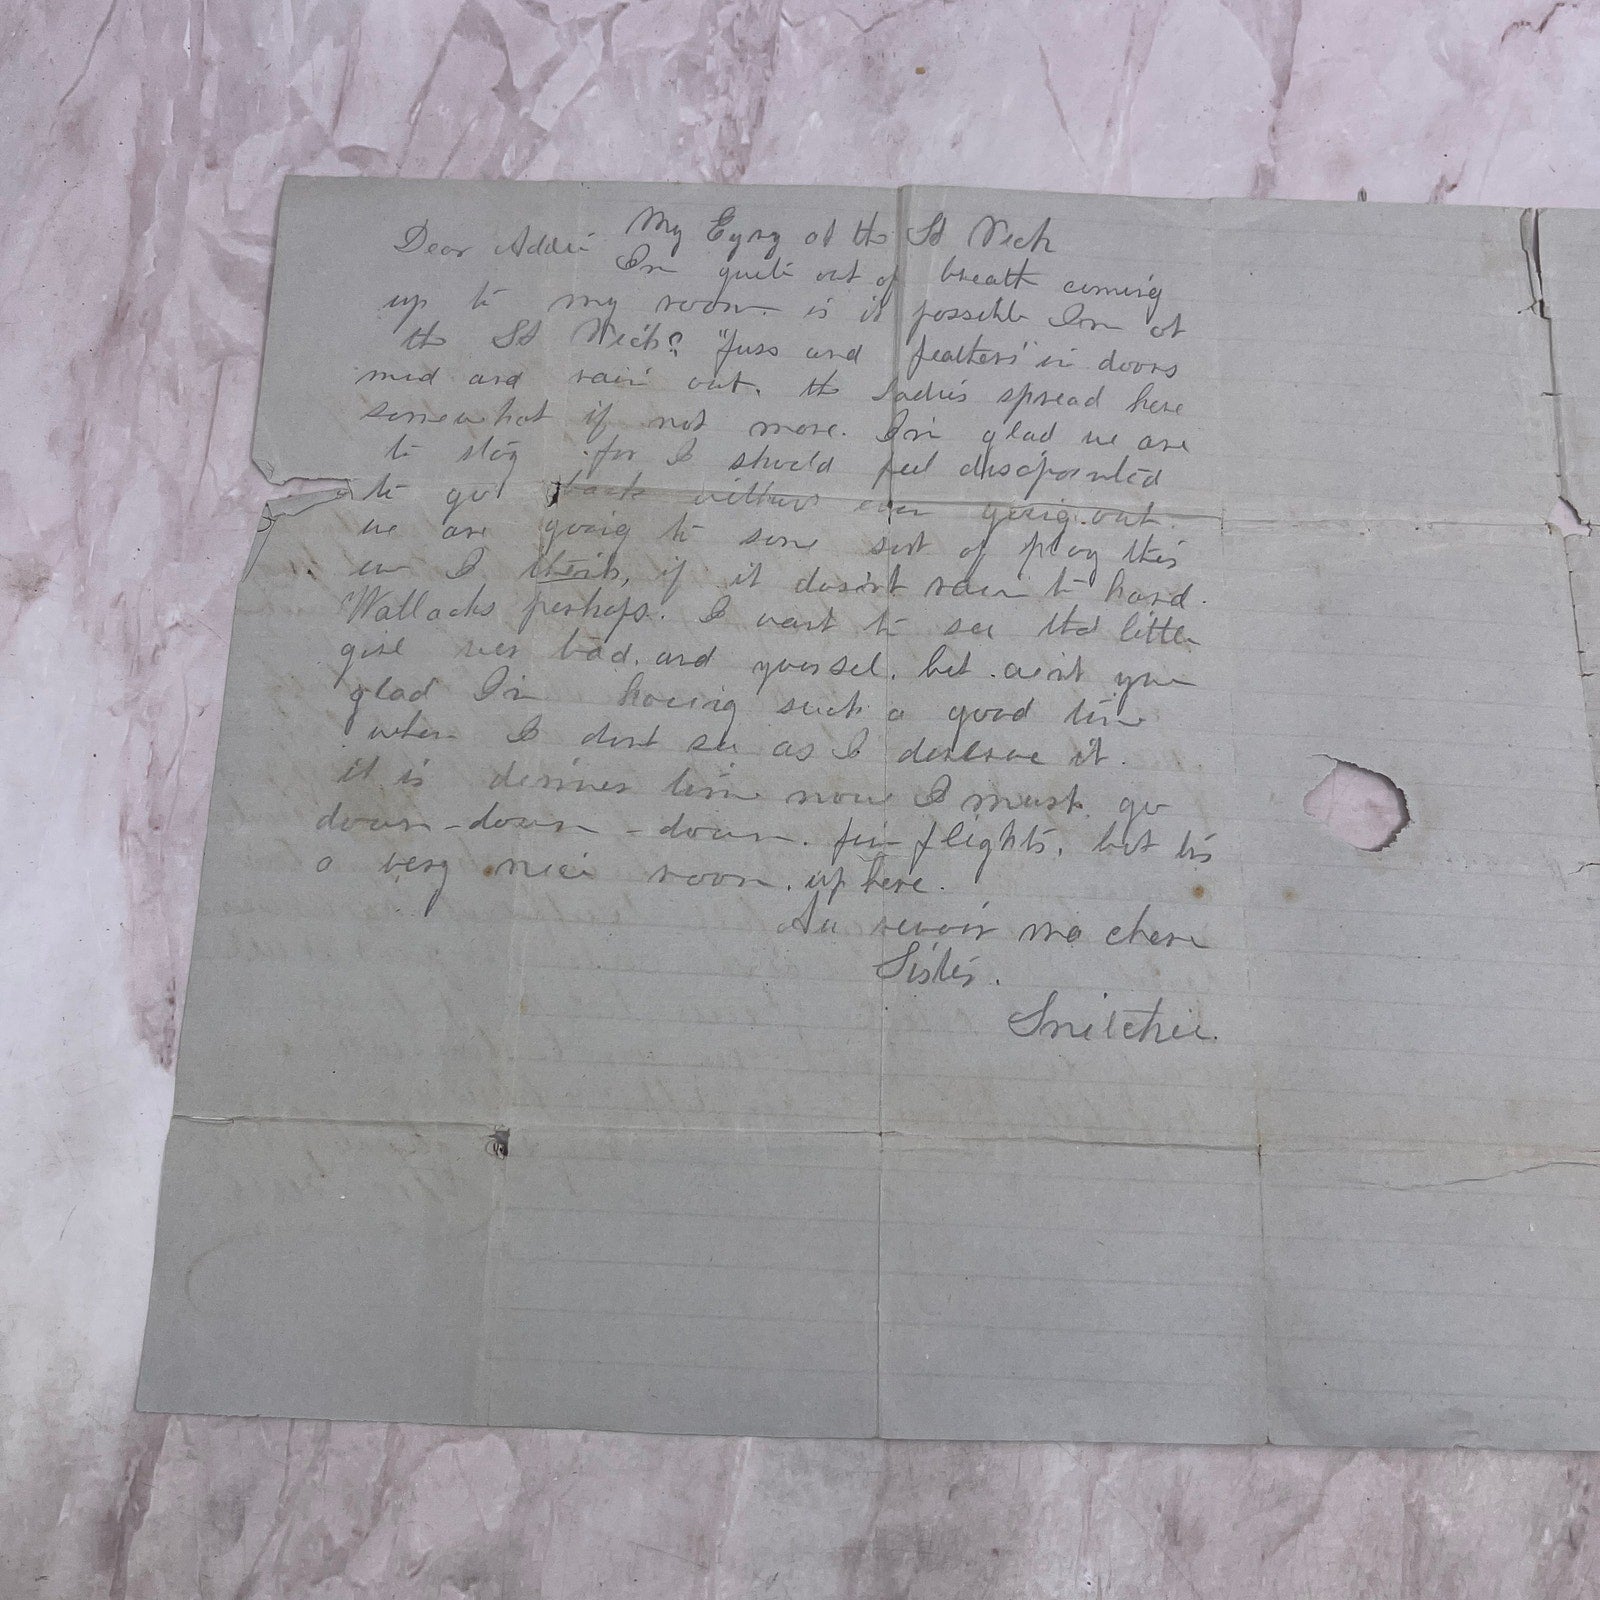 My Eyry at the St Nich
Dear Addie
I'm quite out of breath coming
up to my room. is it possible I'm at
the St Nich? "fuss and feathers" in doors
mud and rain out. the ladies spread here
somewhat if not more. I'm glad we are
to stay for I should feel disappointed
to go back without even going out.
we are going to some sort of play this
eve I think, if it doesn't rain to hard.
Wallacks perhaps. I want to see the little
girl very bad. and yourself. but ain't you
glad I'm having such a good time
when I dont see as I deserve it.
it is dinner time now I must go
down - down - down. five flights. but tis
a very nice room. up here.
Au revoir ma chere
Sister.
Snitchie.